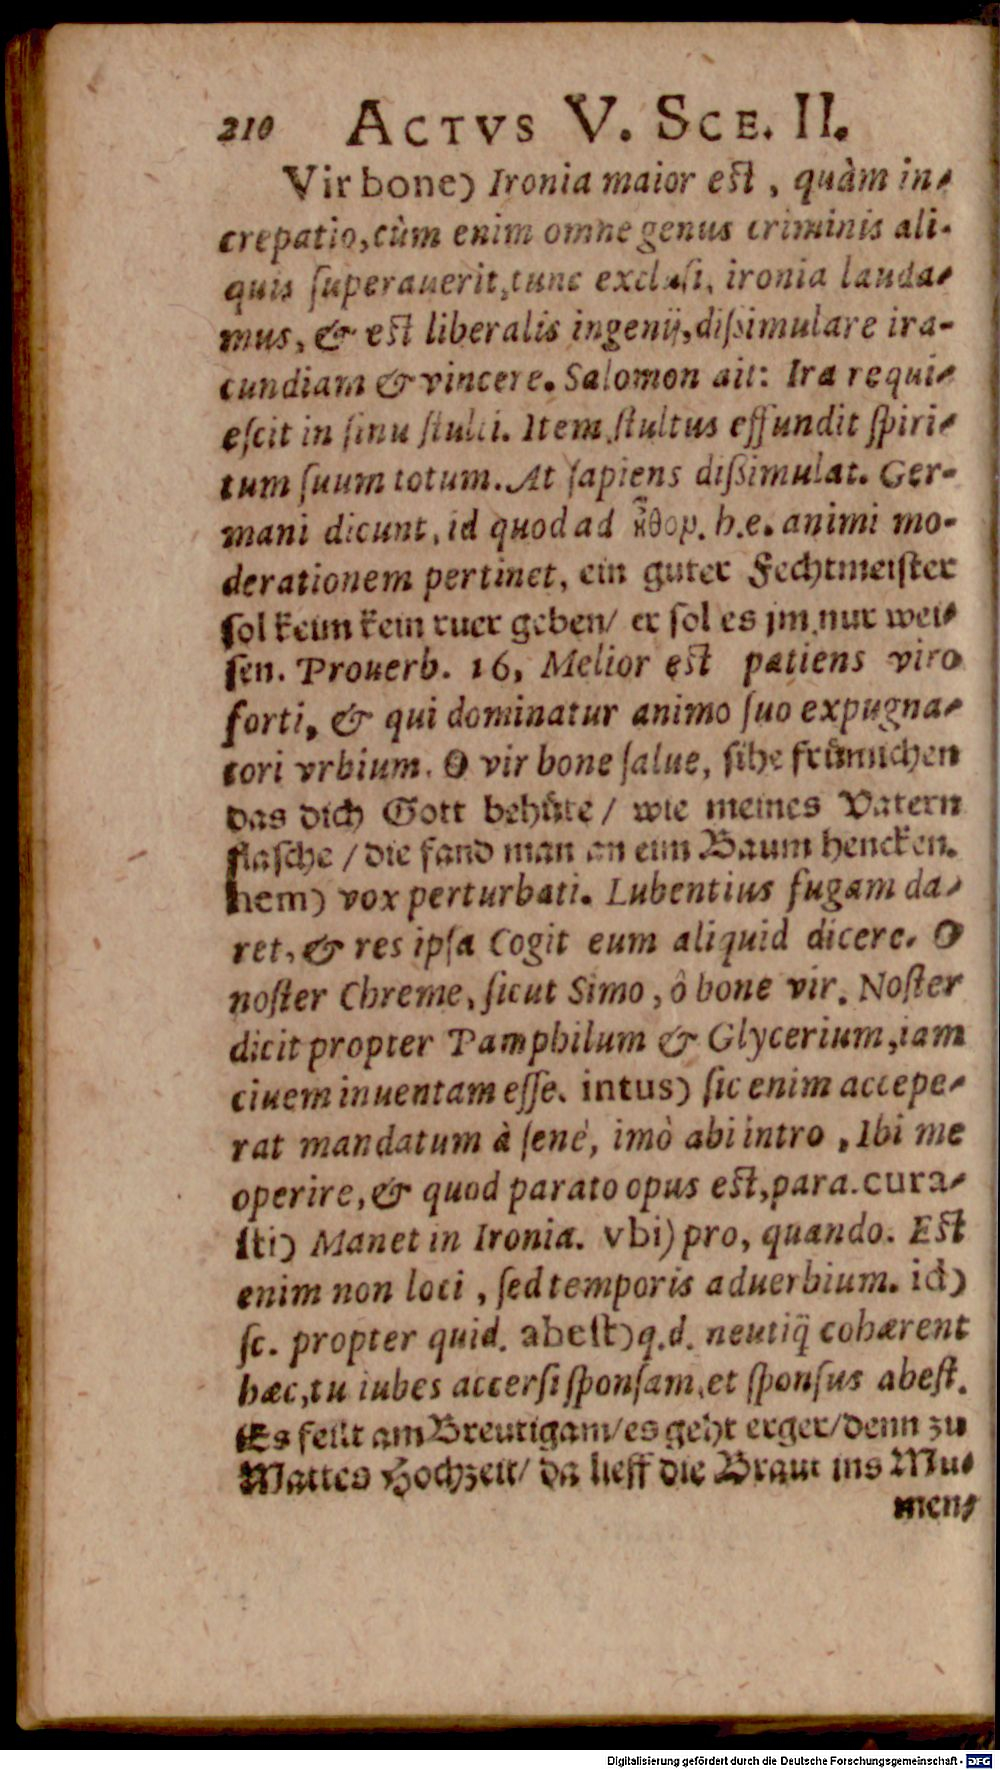 210 ACTVS V. SCE. II.
Vir bone) Ironia maior est, quàm in-
crepatio, cùm enim omne genus criminis ali-
quis ſuperauerit, tunc ironia lauda-
mus, & est liberalis ingenij, diſsimulare ira-
cundiam & vincere. Salomon ait: Ira requi-
eſcit in ſinu ſtulti. Item ſtultus effundit ſpiri-
tum ſuum totum. At ſapiens diſsimulat. Ger-
mani dicunt, id quod ad h.e. animi mo-
derationem pertinet, ein guter Fechtmeiſter
ſol keim kein ruer geben/ er ſol es jm nur wei-
ſen. Prouerb. 16, Melior est patiens viro
forti, & qui dominatur animo ſuo expugna-
tori vrbium. O vir bone ſalue, ſihe
das dich Gott behuͤte / wie meines Vatern
flaſche / die fand man an eim Baum hencken.
hem) vox perturbati. Lubentius fugam da-
ret, & res ipſa Cogit eum aliquid dicere. O
noſter Chreme, ſicut Simo, ô bone vir. Noſter
dicit propter Pamphilum & Glycerium, iam
ciuem inuentam eſſe. intus) ſic enim accepe-
rat mandatum à ſene, imò abi intro, Ibi me
operire, & quod parato opus est, para. cura-
ſti) Manet in Ironia. vbi) pro, quando. Est
enim non loci, ſed temporis aduerbium. id)
ſc. propter quid. abeſt) q.d. neutiq̃ cohærent
hæc, tu iubes accerſi ſponſam, et ſponſus abeſt.
Es feilt am Breutigam/ es geht erger/ denn zu
Mattes Hochzeit/ da lieff die Braut ins Mu-
men-
Digitalisierung gefördert durch die Deutsche Forschungsgemeinschaft - DFG